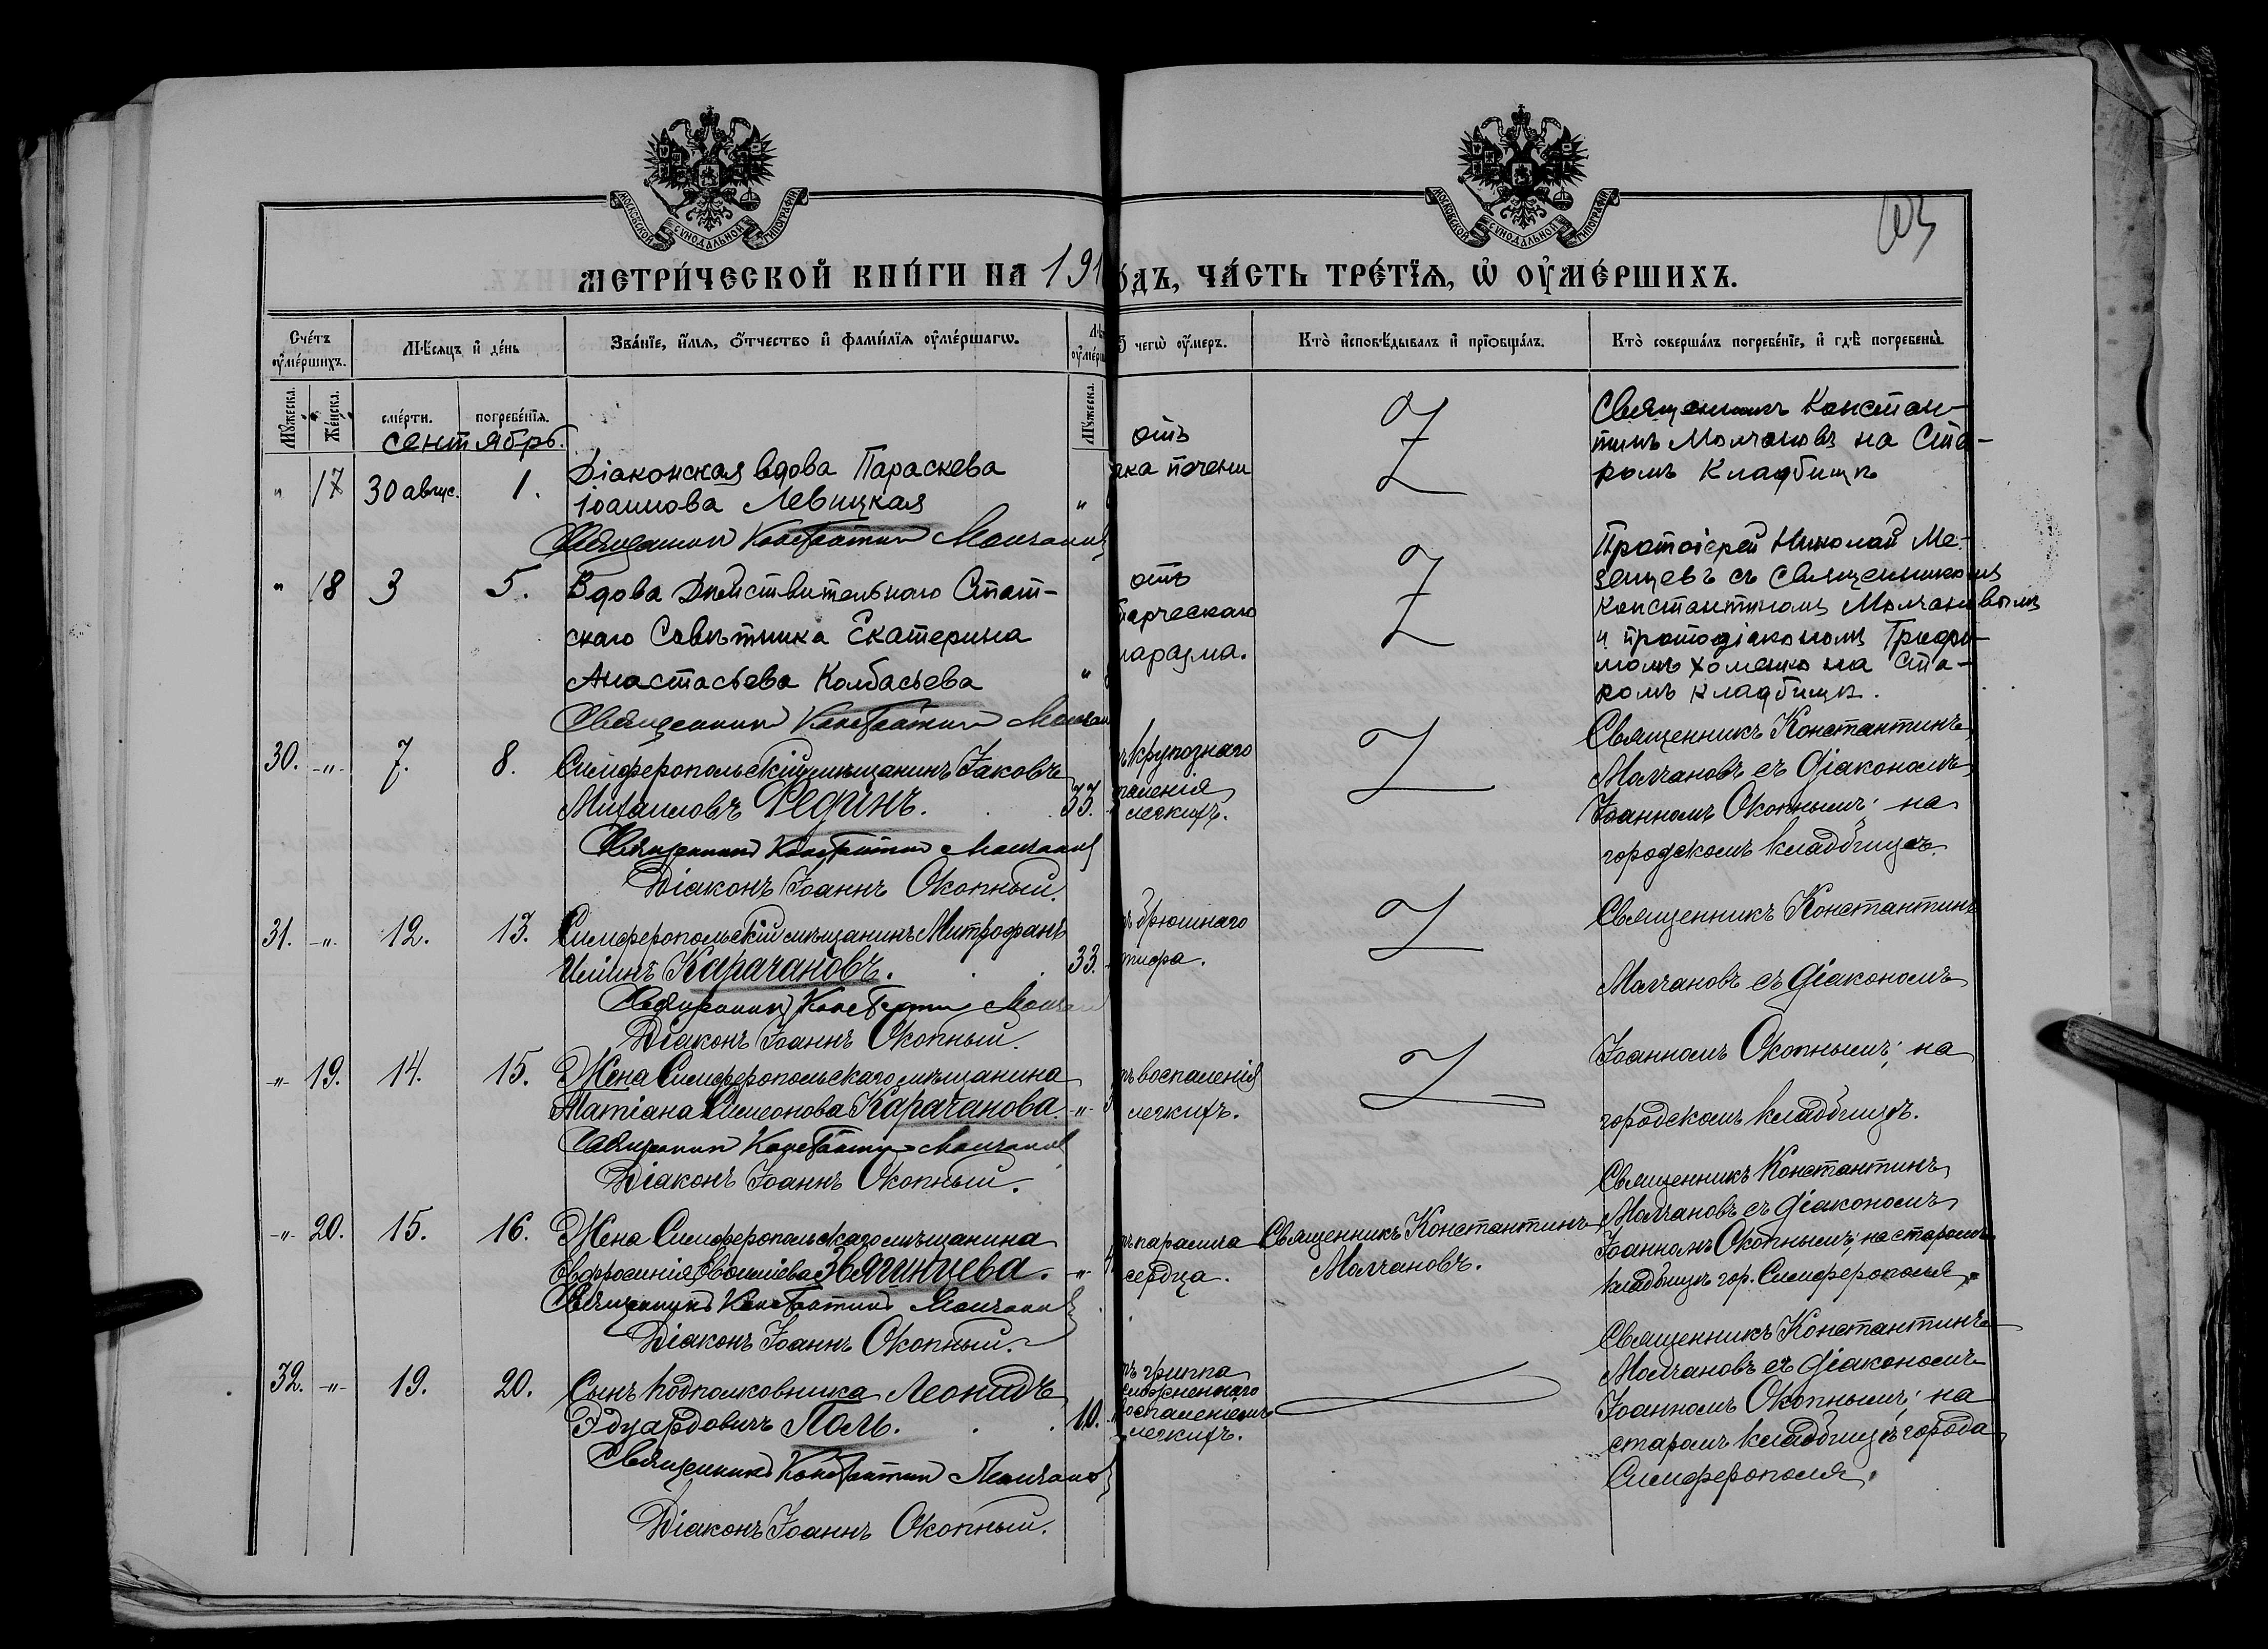 МОСКОВСКОЙ СѴНОДАЛЬНОЙ ТИПОГРАФІИ
МОСКОВСКОЙ СѴНОДАЛЬНОЙ ТИПОГРАФІИ
103
МЕТРИ́ЧЕСКОЙ КНИ́ГИ НА 191
о́дъ, ЧА́СТЬ ТРЕ́ТЇѦ, Ѡ҆ ОУ҆МЕ́РШИХЪ.
Сче́тъ оу҆ме́ршихъ.
Мѣ́сяцъ и҆ де́нь
Зва́нїе, и҆́мя, ѻ҆́тчество и҆ фами́лїя оу҆ме́ршагѡ.
чегѡ̀ оу҆́меръ.
Кто̀ и҆сповѣ́дывалъ и҆ прїѡбща́лъ.
Кто̀ соверша́лъ погребе́нїе, и҆ гдѣ̀ погребены̀.
Мꙋ́жеска.
Же́нска.
сме́рти.
погребе́нїя.
Мꙋ́жеска.
сентябрь.
" 17 30 авгус. 1. Діаконская вдова Параскева
Іоаннова Левицкая "
Священникъ Константинъ Молчановъ
отъ
рака печени
Священникъ Констан-
тинъ Молчановъ на Ста-
ромъ Кладбищѣ
" 18 3 5. Вдова Дѣйствительнаго Стат-
скаго Совѣтника Екатерина
Анастасьева Колбасьева "
Священникъ Константинъ Молчан
отъ
старческаго
маразма.
Протоіерей Николай Ме-
зенцевъ съ Священникомъ
Константиномъ Молчановымъ
и протодіакономъ Трифи-
ломъ Хоменко на Ста-
ромъ кладбищѣ.
30. -"- 7. 8. Симферопольскій мѣщанинъ Іаковъ
Михаиловъ Рединъ. 33.
Священникъ Константинъ Молчановъ
Діаконъ Іоаннъ Окопный.
ъ крупознаго
паленія
легкихъ.
Священникъ Константинъ
Молчановъ съ діакономъ
Іоанномъ Окопнымъ; на
городскомъ кладбищѣ.
31. -"- 12. 13. Симферопольскій мѣщанинъ Митрофанъ
Иліинъ Карачановъ. 33.
Священникъ Константинъ Молчан
Діаконъ Іоаннъ Окопный.
ъ брюшнаго
тифа.
Священникъ Константинъ
Молчановъ съ діакономъ
-"- 19. 14. 15. Жена Симферопольскаго мѣщанина
Татіана Симеонова Карачанова -"-
Священникъ Константинъ Молчановъ
Діаконъ Іоаннъ Окопный.
ъ воспаленія
легкихъ.
Іоанномъ Окопнымъ; на
городскомъ кладбищѣ.
-"- 20. 15. 16. Жена Симферопольскаго мѣщанина
Евфросинія Звягинцева. -"-
Священникъ Константинъ Молчановъ
Діаконъ Іоаннъ Окопный.
ъ паралича
сердца.
Священникъ Константинъ
Молчановъ.
Священникъ Константинъ
Молчановъ съ діакономъ
Іоанномъ Окопнымъ; на старомъ
кладбищѣ гор. Симферополя.
32. -"- 19. 20. Сынъ подполковника Леонидъ
Эдуардовичъ Поль. 10.
Священникъ Константинъ Молчановъ
Діаконъ Іоаннъ Окопный.
ъ гриппа
сложненнаго
воспаленіемъ
легкихъ.
Священникъ Константинъ
Молчановъ съ діакономъ
Іоанномъ Окопнымъ; на
старомъ кладбищѣ города
Симферополя.